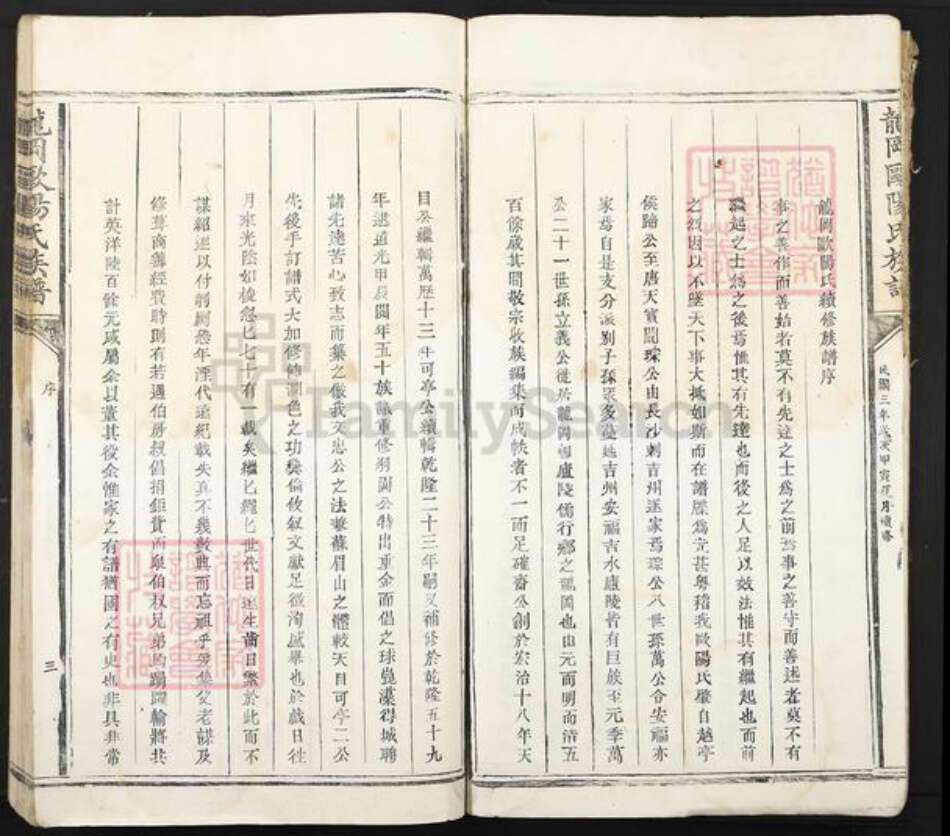 龍岡歐陽氏族譜
民國三年歲次甲寅
龍岡歐陽氏續修族譜序
事之善作而善始者莫不有先達之士為之前為事之善守而善述者莫不有
繼起之士為之後焉惟其有先達也而後之人足以效法惟其有繼起也而前
之烈因以不墜天下事大抵如斯而在譜牒為尤甚粵稽我歐陽氏肇自越亭
侯蹄公至唐天寶間琮公由長沙刺吉州遂家焉琮公八世孫萬公令安福亦
家焉自是支分派別子孫眾多蔓延吉州安福吉水廬陵皆有巨族至元季萬
公二十一世孫立義公徙於龍岡卽廬陵儒行鄉之龍岡也由元而明而清五
百餘歲其間敬宗收族編集而成帙者不一而足確齋公創於宏治十八年天
目公繼輯萬歷十三年可亭公續輯乾隆二十三年嗣又補修於乾隆五十九
年逮道光甲辰閱年五十族議重修羽岡公特出重金而倡之球嶷漢得城聘
諸先達苦心致志而纂之倣我文忠公之法兼蘇眉山之體較天目可亭二公
先後手訂譜式大加修飾潤色之功奬倫攸敘文獻足徵洵盛舉也於戲日往
月來光陰如梭忽已七十有 載矣繼匕繩匕世代日遠生齒日繁於此而不
謀紹述以付剞劂恐年湮代遠紀載失真不幾數典而忘祖乎爰集父老謀及
修葺商籌經費時則有若遇伯房叔倡捐鉅貲而眾伯叔兄弟踴躍輸將共
計英洋陸百餘元咸屬余以董其役余惟家之有譜猶國之有史也非具非常
龍岡歐陽氏族譜
序
三
FamilySearch